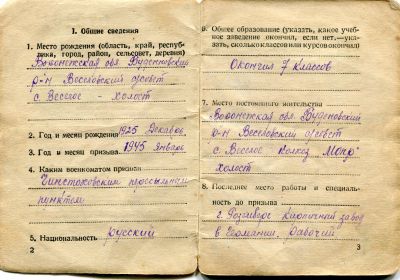 I. Общие сведения
1. Место рождения (область, край, респуб-
лика, город, район, сельсовет, деревня)
Воронежская обл Буденновский
р-н Веселовский с/совет
с. Веселое - холост
2. Год и месяц рождения 1925 Декабрь
3. Год и месяц призыва 1945 Январь
4. Каким военкоматом призван
пунктом
5. Национальность русский
2
6. Общее образование (указать, какое учеб-
ное заведение окончил, если нет,—ука-
зать, сколько классов или курсов окончил)
Окончил 7 классов
7. Место постоянного жительства
Воронежская обл Буденовский
р-н Веселовский с/совет
с. Веселое Колхоз "Мопр"
холост
8. Последнее место работы и специаль-
ность до призыва
г. Розенберг Кирпичный завод
в Германии, Рабочий
3